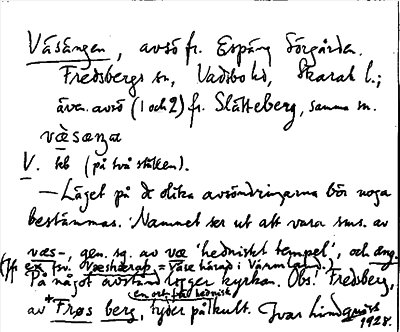 Väsängen, avsö fr. Espäng Sörgården.
Fredsbergs sn, Vadsbo hd, Skarab l.;
även avsö (1 och 2) fr. Slätteberg, samma sn.
væ̀sæŋa
V. kb (på två ställen).
— Läget på de olika avsöndringarna bör noga
bestämmas. Namnet ser ut att vara sms. av
væs-, gen. sg. av væ 'hedniskt tempel', och äng.
(Jfr ex. fsv. Væshærap = Väse härad i Värmland.)
På något avstånd ligger kyrkan. Obs. Fredsberg,
en ort från hednisk
av *Frøs berg, tyder på kult. Ivar Lindquist
1928.